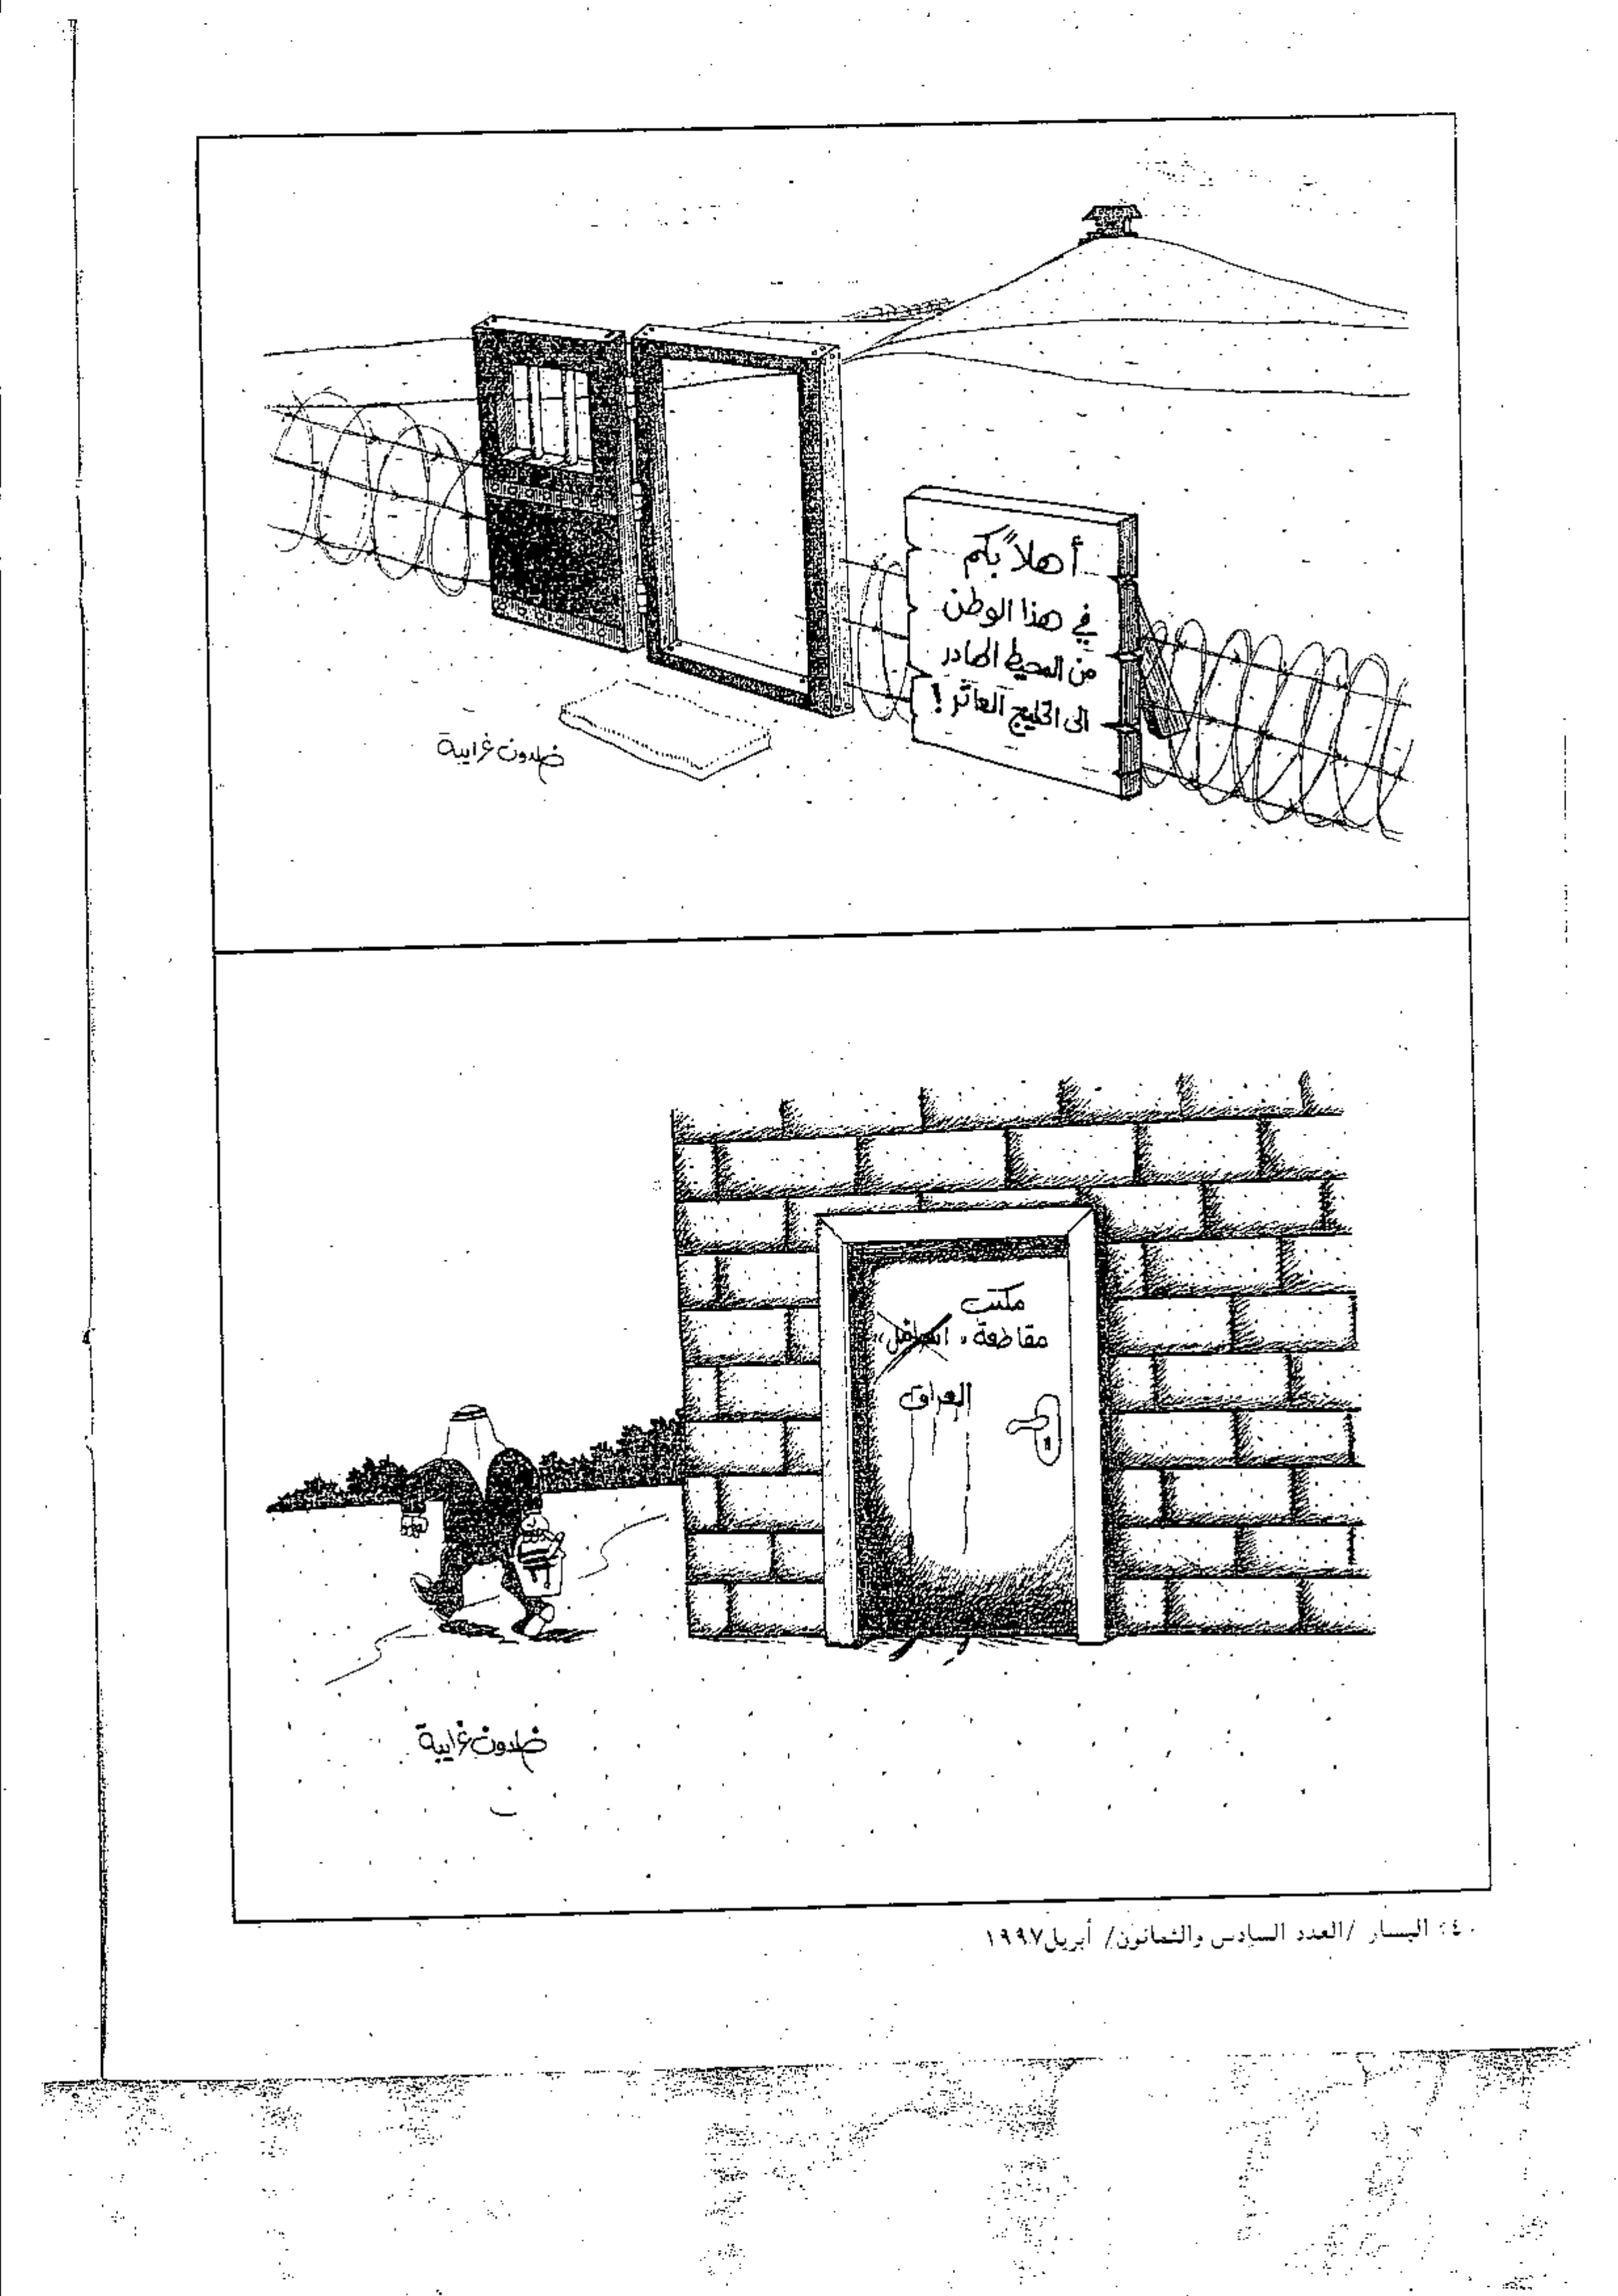 أهلاً بكم
في هذا الوطن
من المحيط الهادر
الى الخليج العاثر !
خلدون غرايبة
مكتب
مقاطعة « اسرائيل »
العراق
خلدون غرايبة
٤٠؛ اليسار /العدد السادس والثمانون/ أبريل١٩٩٧